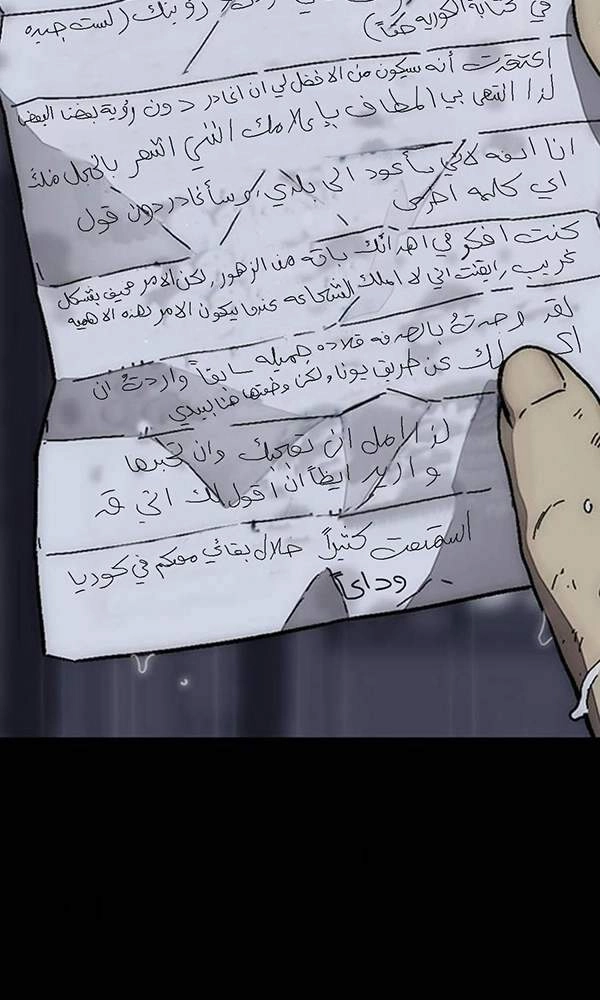 رؤيتك (لست جيده
في كتابة الكوريه حقاً)
اعتقدت أنه سيكون من الافضل لي ان اغادر دون رؤية بعضنا البعض
لذا انتهى بي المطاف بإعلامك انني اشعر بالخجل منك
انا اسفه لاني سأعود الى بلدي، وسأغادر دون قول
اي كلمه اخرى
كنت افكر في اهدائك باقه من الزهور, لكن الامر مخيف بشكل
غريب, ايقنت اني لا املك الشجاعه عندما يكون الامر بهذه الاهميه
لقد وجدت بالصدفه قلاده جميله سابقاً واردت ان
لك عن طريق يونا, ولكن وضعتها هنا بيدي
لذا امل ان تعجبك وان تخبرها
واريد ايضاً ان اقول لك اني قد
استمتعت كثيراً خلال بقائي معكم في كوريا
وداعاً..